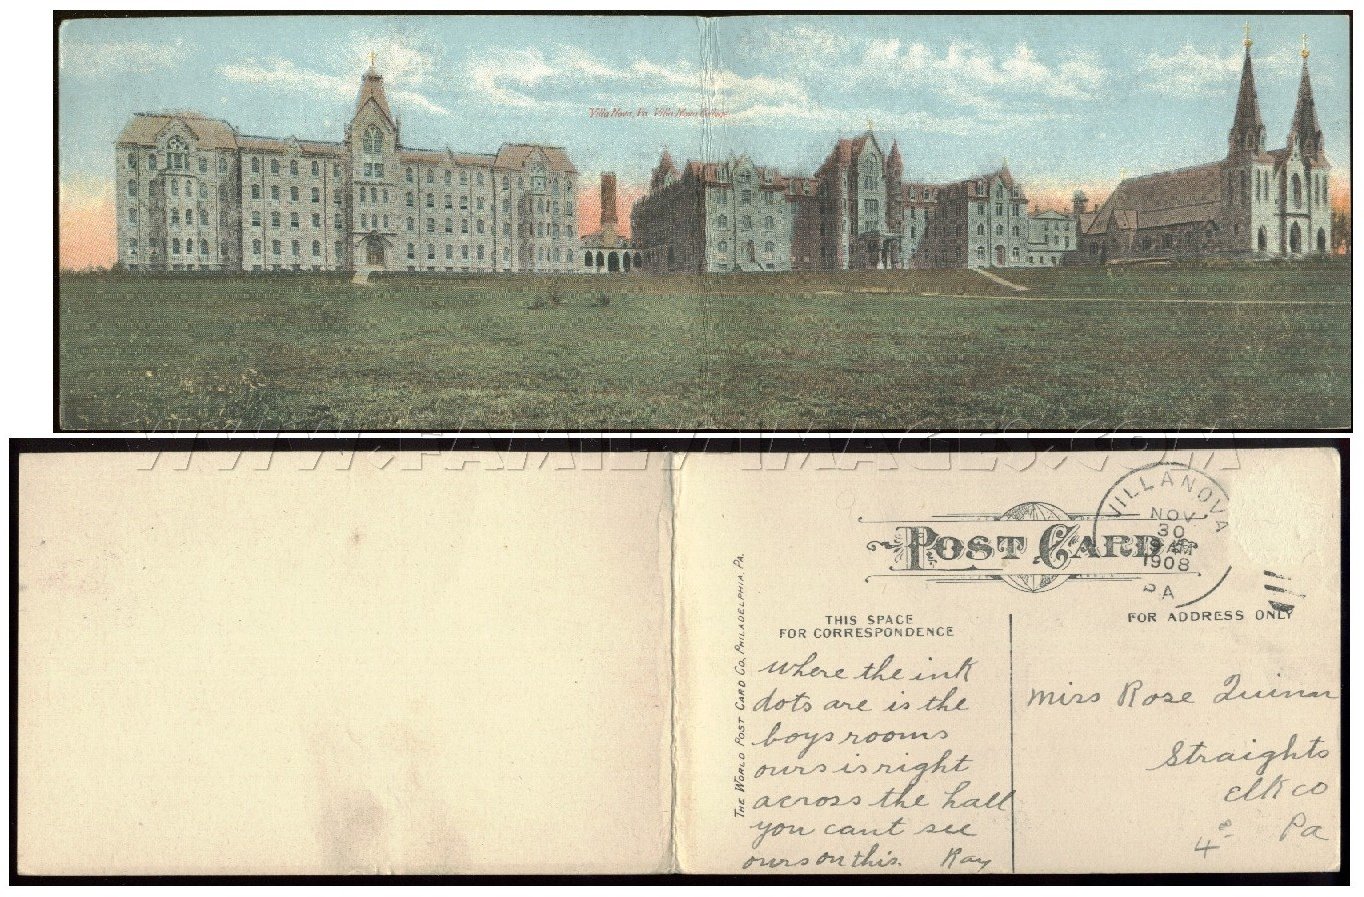 Villa Nova, Pa. Villa Nova College
WWW.FAMILYIMAGES.COM
VILLANOVA
NOV
30
9 AM
1908
PA
POST CARD
THIS SPACE
FOR CORRESPONDENCE
FOR ADDRESS ONLY
THE WORLD POST CARD CO. PHILADELPHIA, PA.
where the ink
dots are is the
boys rooms
ours is right
across the hall
you cant see
ours on this. Ray
Miss Rose Quinn
Straights
elk co
Pa